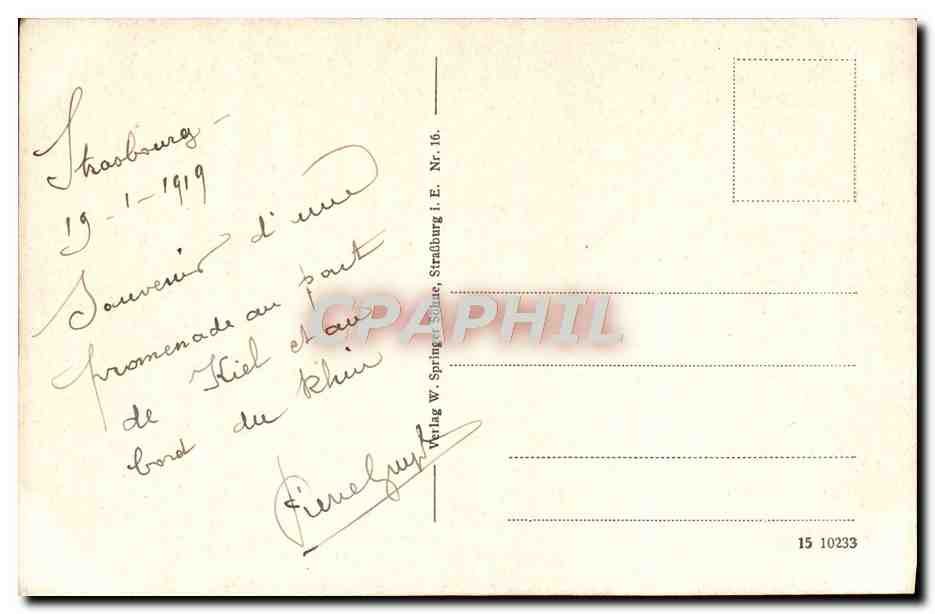 Strasbourg -
19 - 1 - 1919
Souvenir d'une
promenade au pont
de Kiel et au
bord du Rhin
Pierre
Verlag W. Springer Söhne, Straßburg i. E. Nr. 16.
CPAPHIL
15 10233